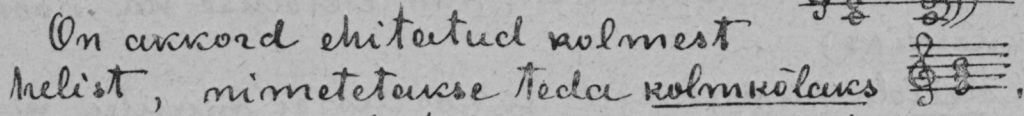 On akkord ehitatud kolmest
helist, nimetetakse teda kolmkõlaks .